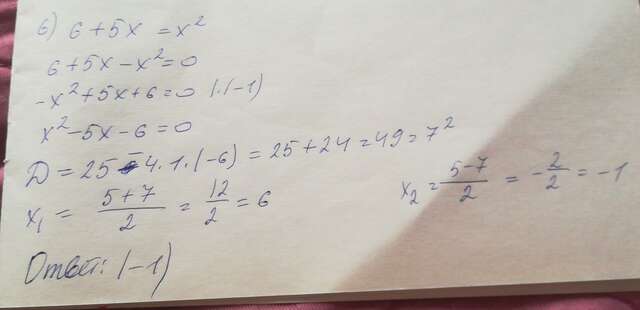 б) 6 + 5x = x²
6 + 5x - x² = 0
-x² + 5x + 6 = 0 |·(-1)
x² - 5x - 6 = 0
D = 25 - 4·1·(-6) = 25 + 24 = 49 = 7²
x₁ = (5+7)/2 = 12/2 = 6
x₂ = (5-7)/2 = -2/2 = -1
Ответ: (-1)